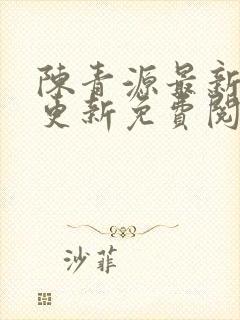 陳青源最新
更新免費閱
沙菲